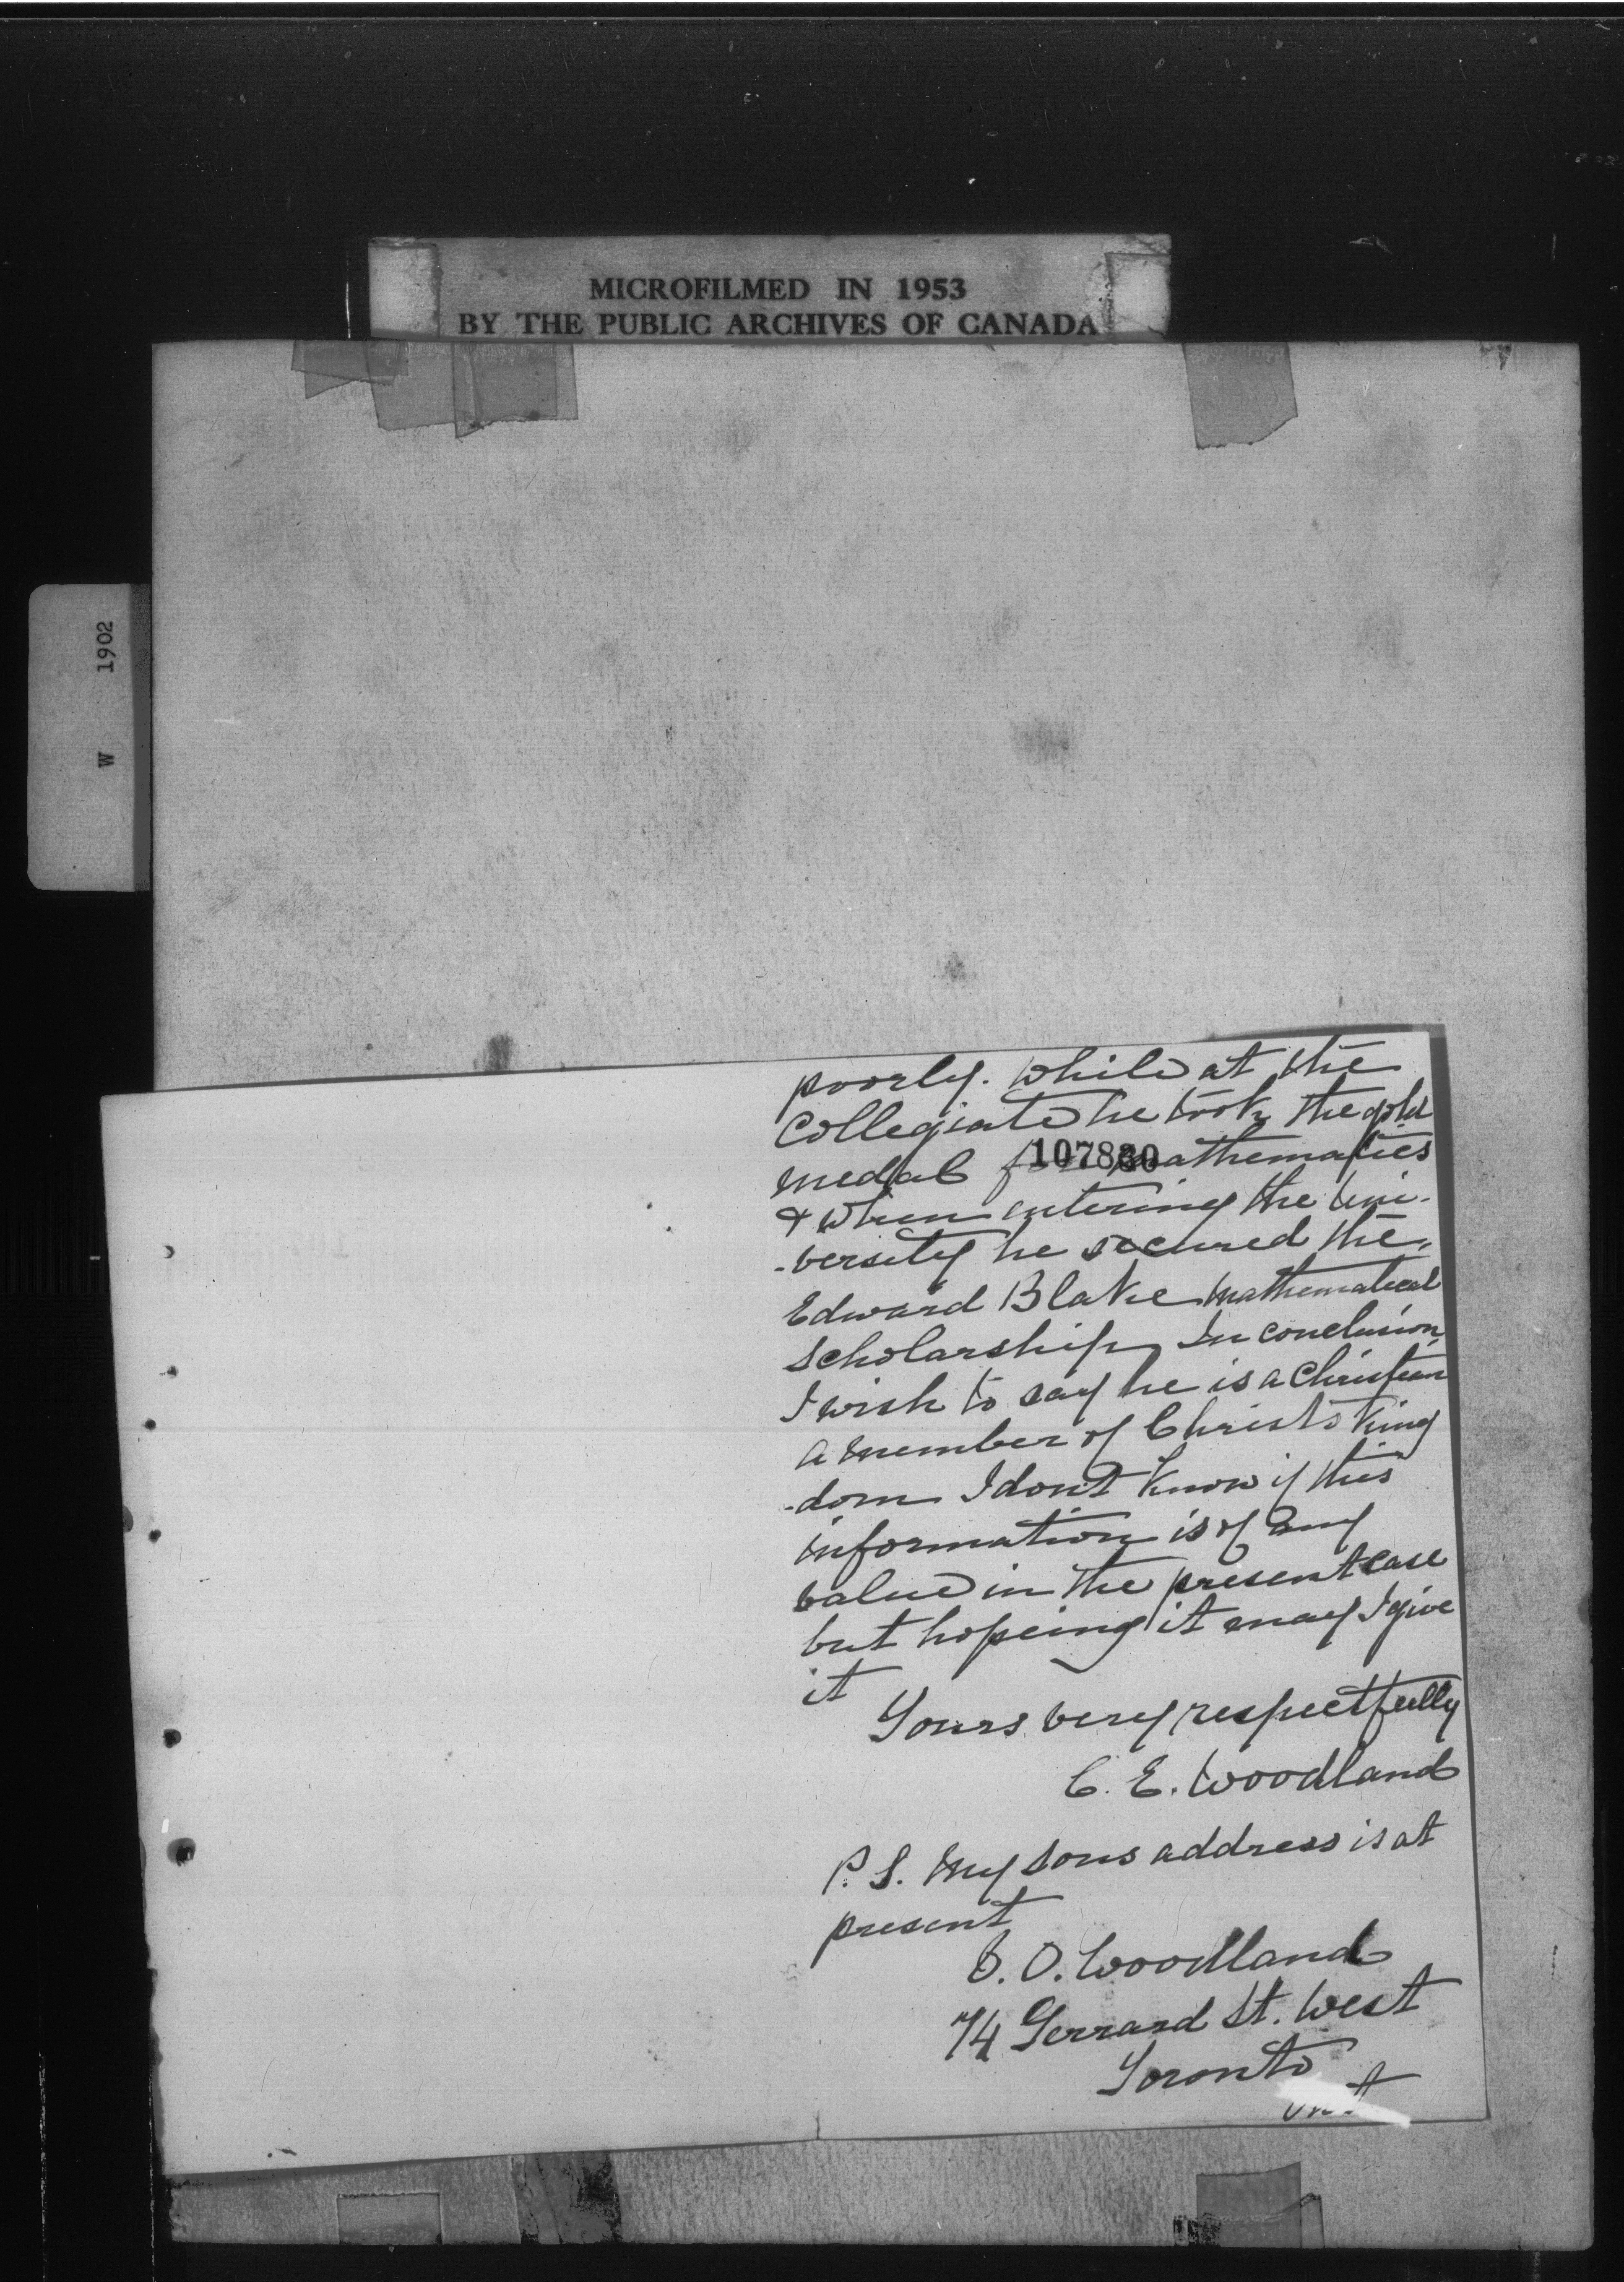 MICROFILMED IN 1953
BY THE PUBLIC ARCHIVES OF CANADA
W 1902
poorly. While at the
Collegiate he took the gold
medal for mathematics
107880
& when entering the Uni-
-versity he secured the
Edward Blake mathematical
Scholarship In conclusion
I wish to say he is a Christian
a member of Christs King
-dom I dont know if this
information is of any
value in the present case
but hopeing it may I give
it
Yours very respectfully
C. E. Woodland
P.S. My sons address is at
present
O. Woodland
74 Gerrard St. West
Toronto
Ont